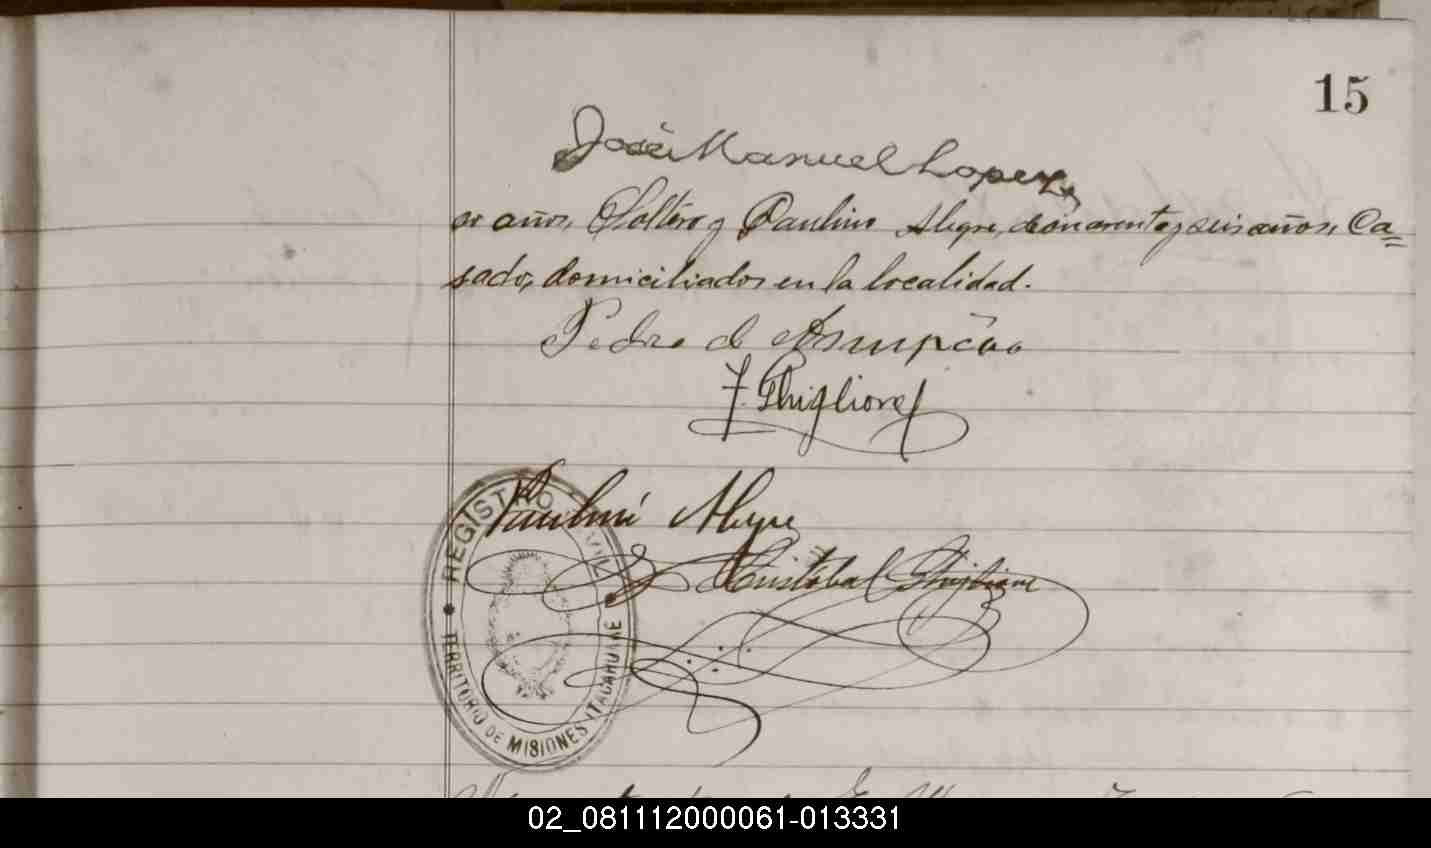 15
José Manuel Lopez
años, Soltero y Paulino Alegre, de cuarenta y seis años, Ca=
sado, domiciliados en la localidad.
Pedro d Asumpcão
F. Ghiglione
Paulino Alegre
Cristobal Ghiglione
REGISTRO CIVIL
TERRITORIO DE MISIONES ITACARUARE
02_081112000061-013331